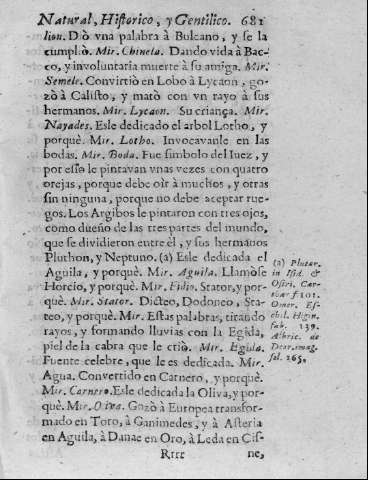 Natural, Historico, y Gentilico. 681
lion. Diò vna palabra à Bulcano, y se la
cumpliò. Mir. Chineta. Dando vida à Bac-
co, y involuntaria muerte à su amiga. Mir.
Semele. Convirtiò en Lobo à Lycaon, go-
zò à Calisto, y matò con vn rayo à sus
hermanos. Mir. Lycaon. Su criança. Mir.
Nayades. Esle dedicado el arbol Lotho, y
porquè. Mir. Lotho. Invocavanle en las
bodas. Mir. Boda. Fue simbolo del Iuez, y
por esso le pintavan vnas vezes con quatro
orejas, porque debe oìr à muchos, y otras
sin ninguna, porque no debe aceptar rue-
gos. Los Argibos le pintaron con tres ojos,
como dueño de las tres partes del mundo,
que se dividieron entre èl, y sus hermanos
Pluthon, y Neptuno. (a) Esle dedicada el
Aguila, y porquè. Mir. Aguila. Llamòse
Horcio, y porquè. Mir. Fidio. Stator, y por-
què. Mir. Stator. Dicteo, Dodoneo, Sta-
teo, y porquè. Mir. Estas palabras, tirando
rayos, y formando lluvias con la Egida,
piel de la cabra que le criò. Mir. Egida.
Fuente celebre, que le es dedicada. Mir.
Agua. Convertido en Carnero, y porquè.
Mir. Carnero. Esle dedicada la Oliva, y por-
què. Mir. Oliva. Gozò à Europea transfor-
mado en Toro, à Ganimedes, y à Asteria
en Aguila, à Danae en Oro, à Leda en Cis-
Rrrr ne,
(a) Plutar.
in Isid. &
Osiri. Car-
tbar f 101.
Omer. Es-
chil. Higin.
fab. 139.
Albric. de
Deor. imag.
fol. 265.